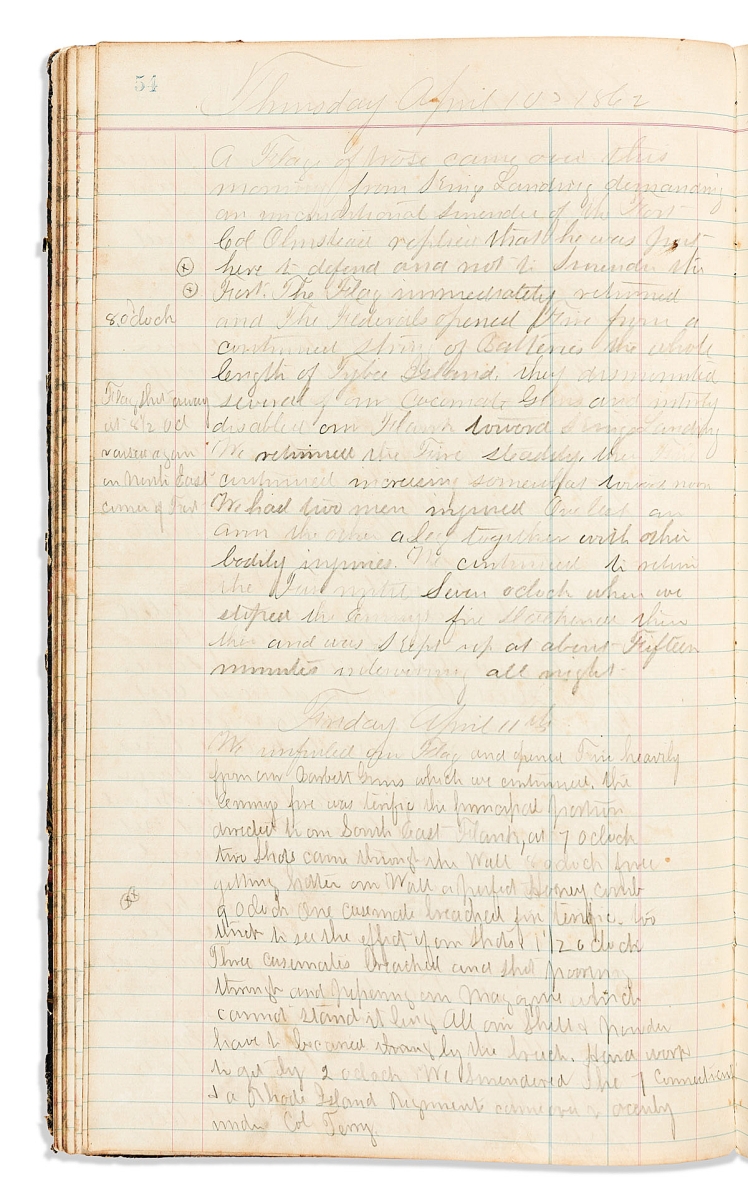 54
Thursday April 10th 1862
A Flag of truse came over this
morning from Kings Landing demanding
an unconditional surender of the Fort
Col Olmstead replied that he was put
here to defend and not to surender the
Fort. The Flag immediately returned
8 oclock
and The Federals opened Fire from a
continued string of Batteries the whole
length of Tybee Island. they dismounted
Flag shot away
at 8 1/2 ocl
raised again
on North East
corner of Fort
several of our Casemate Guns and entirely
disabled our Flank toward Kings Landing
We returned the Fire steadily. the Fire
continued increasing somewhat towards noon
We had two men injured One lost an
arm the other a leg together with other
bodily injuries. We continued to return
the Fire until Seven oclock when we
stoped the Enemys fire slackened then
and was Kept up at about Fifteen
minutes interviewing all night
Friday April 11th
We unfurled our Flag and opened Fire heavily
from our Barbett Guns which we continued. the
Enemys fire was terific the principal portion
directed to our South East Flank, at 7 oclock
two shots came through the Wall 8 oclock fire
getting hotter our Wall a perfect Honey comb
9 oclock One casemate breached fire terific. to
see the effect of our shots 1 1/2 oclock
Three casemates breached and shot pouring
through and our Magazine which
cannot stand it long All our Shell & powder
have to be carried by the breech. Hard work
to get by 2 oclock We Surendered The 7 Connecticut
& a Rhode Island Regiment came over &
under Col Terry.